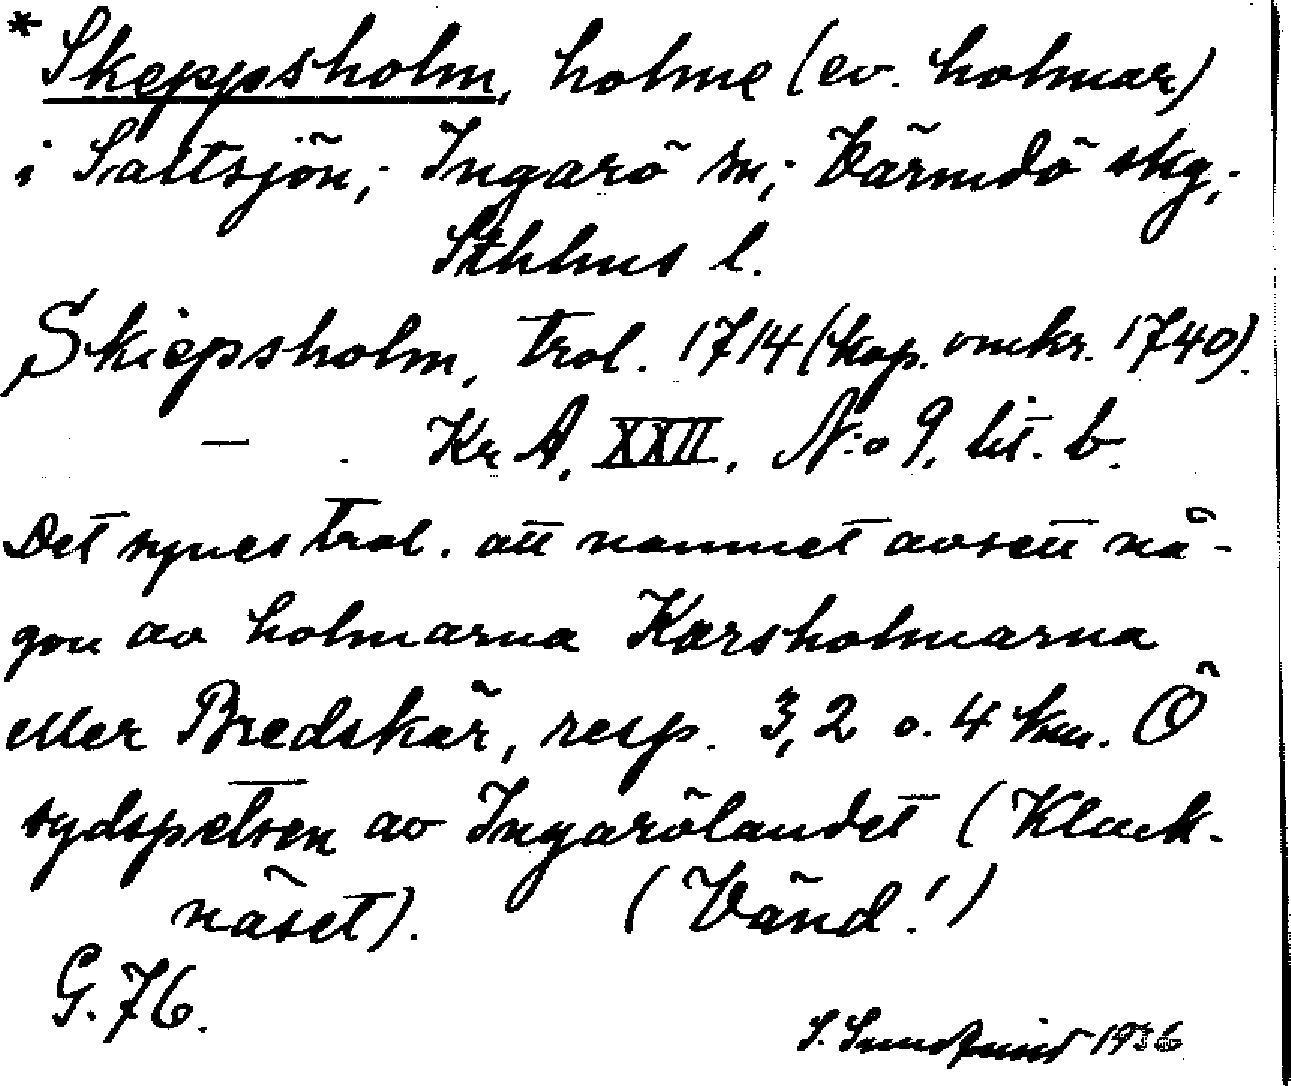 * Skeppsholm, holme (ev. holmar)
i Saltsjön; Ingarö sn; Värmdö skg;
Sthlms l.
Skiepsholm, trol. 1714 (kop. omkr. 1740).
— . Kr A, XXII, N:o 9, lit. b.
Det synes trol. att namnet avsett nå-
gon av holmarna Korsholmarna
eller Bredskär, resp. 3,2 o. 4 km. Ö
sydspetsen av Ingarölandet (Klack-
näset). (Vänd!)
G. 76.
S. 1936